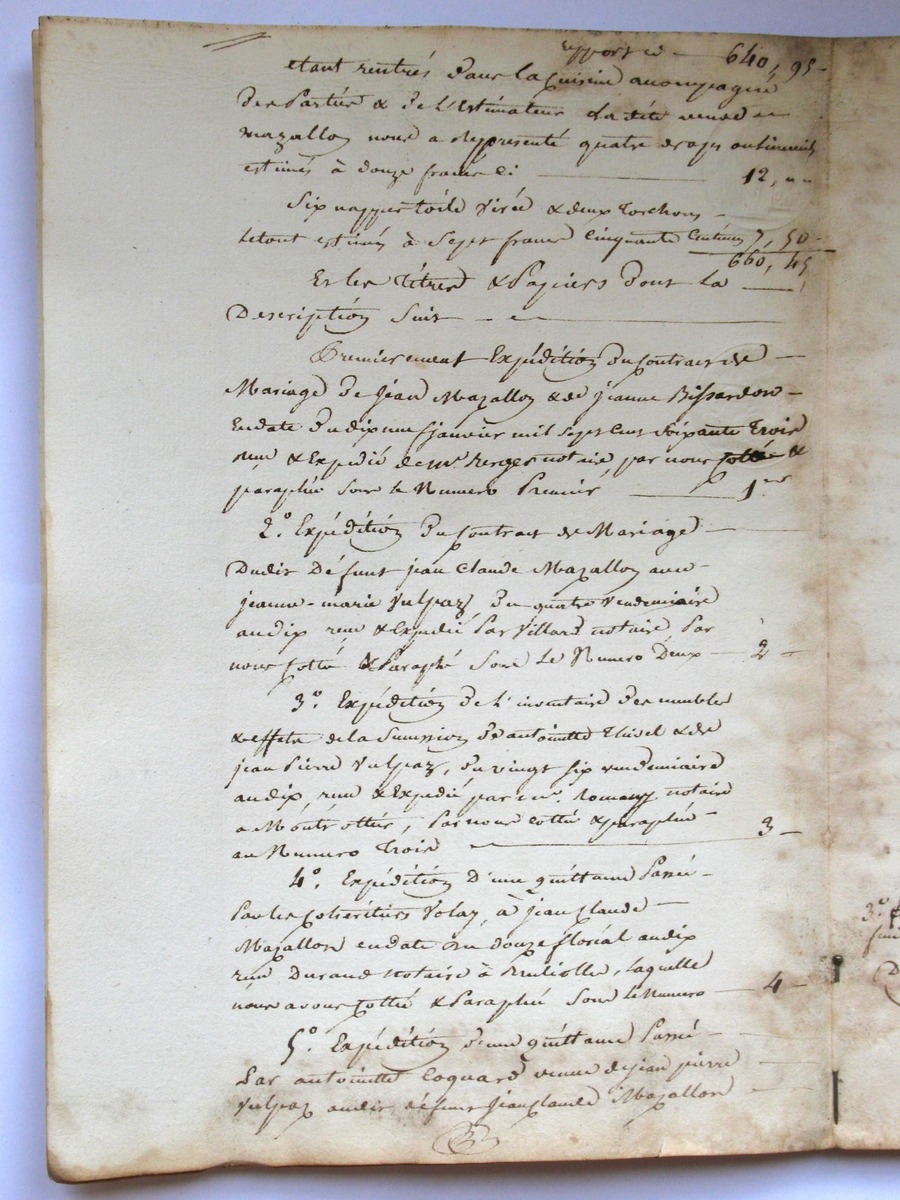 report cy — 640, 95 -
etant rentrés dans la cuisine acompagné
des Parties & de l'Estimateur la dite veuve
Mazallon nous a representé quatre draps
estimés à douze francs ci — 12, ""
Six nappes toile virée & deux Torchons -
le tout estimés à Sept francs Cinquante Centimes 7, 50 -
660, 45
Et les Titres & Papiers dont la —
Description Suit —
Premierement Expédition du Contrat de —
Mariage de jean Mazallon & de jeanne Bissardon -
En date du dix neuf janvier mil Sept Cent Soixante Trois
reçu & Expedié de Me Berger notaire par nous Cotté &
paraphé Sous le Numero Premier — 1er
2° Expédition du Contrat de Mariage —
Dudit Défunt jean Claude Mazallon avec -
jeanne-marie Vulpaz, du quatre Vendemiaire
an dix reçu & Expedié Par Villard notaire Par
nous Cotté & Paraphé Sous Le Numero Deux — 2 -
3° Expédition de L'inventaire des meubles
& effets de la Succession de antoinette Thivel & de
jean Pierre Vulpaz, du vingt Six vendemiaire
an dix, reçu & Expedié par Me. Romany notaire
a Montrottier, Par nous Cotté & paraphé -
au Numero Trois — 3 -
4°. Expédition D'une quittance Passé -
Par les Coheritiers Volay, à jean Claude —
Mazallon en date du douze floréal an dix
reçu Durand notaire à, Laquelle
nous avons Cotté & Paraphé Sous le Numero — 4 -
5° Expédition d'une quittance Passé —
Par antoinette Coquard veuve de jean pierre
Vulpaz audit défunt jean Claude Mazallon
3°